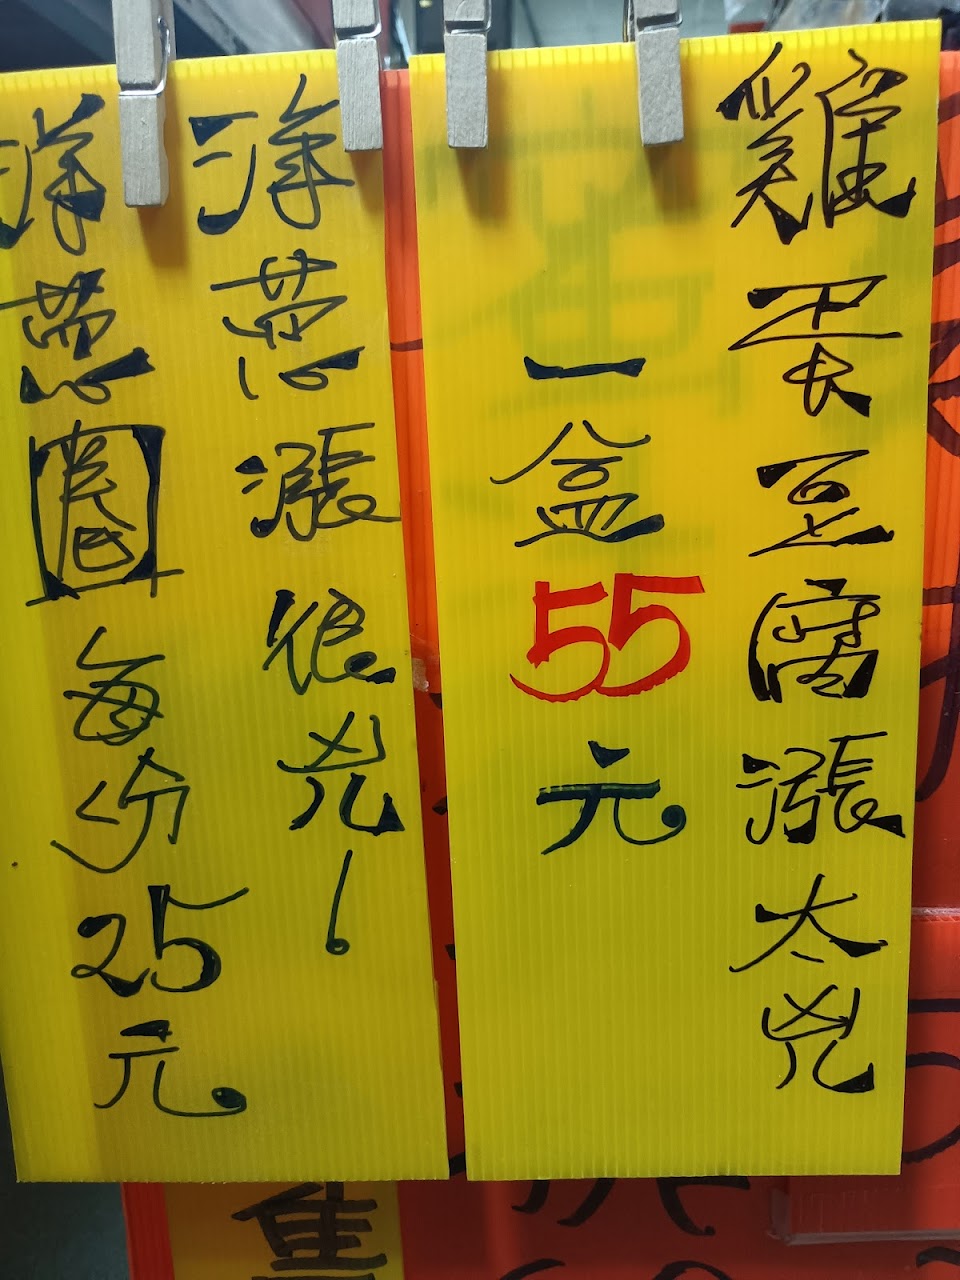 雞蛋豆腐漲太兇
一盒55元
洋蔥漲很兇！
洋蔥圈每份25元